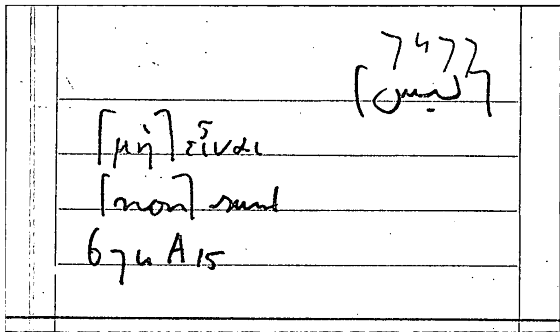 7477
[ليس]
[μὴ] εἶναι
[non] sunt
A 15